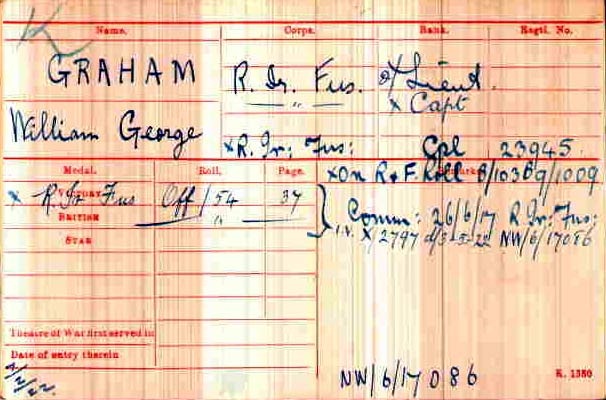 Name. Corps. Rank. Regtl. No.
GRAHAM R. Ir. Fus. 2/Lieut.
" x Capt
William George xR. Ir: Fus: Cpl 23945.
Medal. Roll. Page. xOn R & F. Roll B/103B9/1009
x R. Ir Fus Off/54 37
VICTORY
BRITISH " Comm: 26/6/17 R. Ir: Fus:
STAR I.V. X/2797 d/3-3-22 NW/6/17086
Theatre of War first served in
Date of entry therein
NW/6/17086 K. 1380